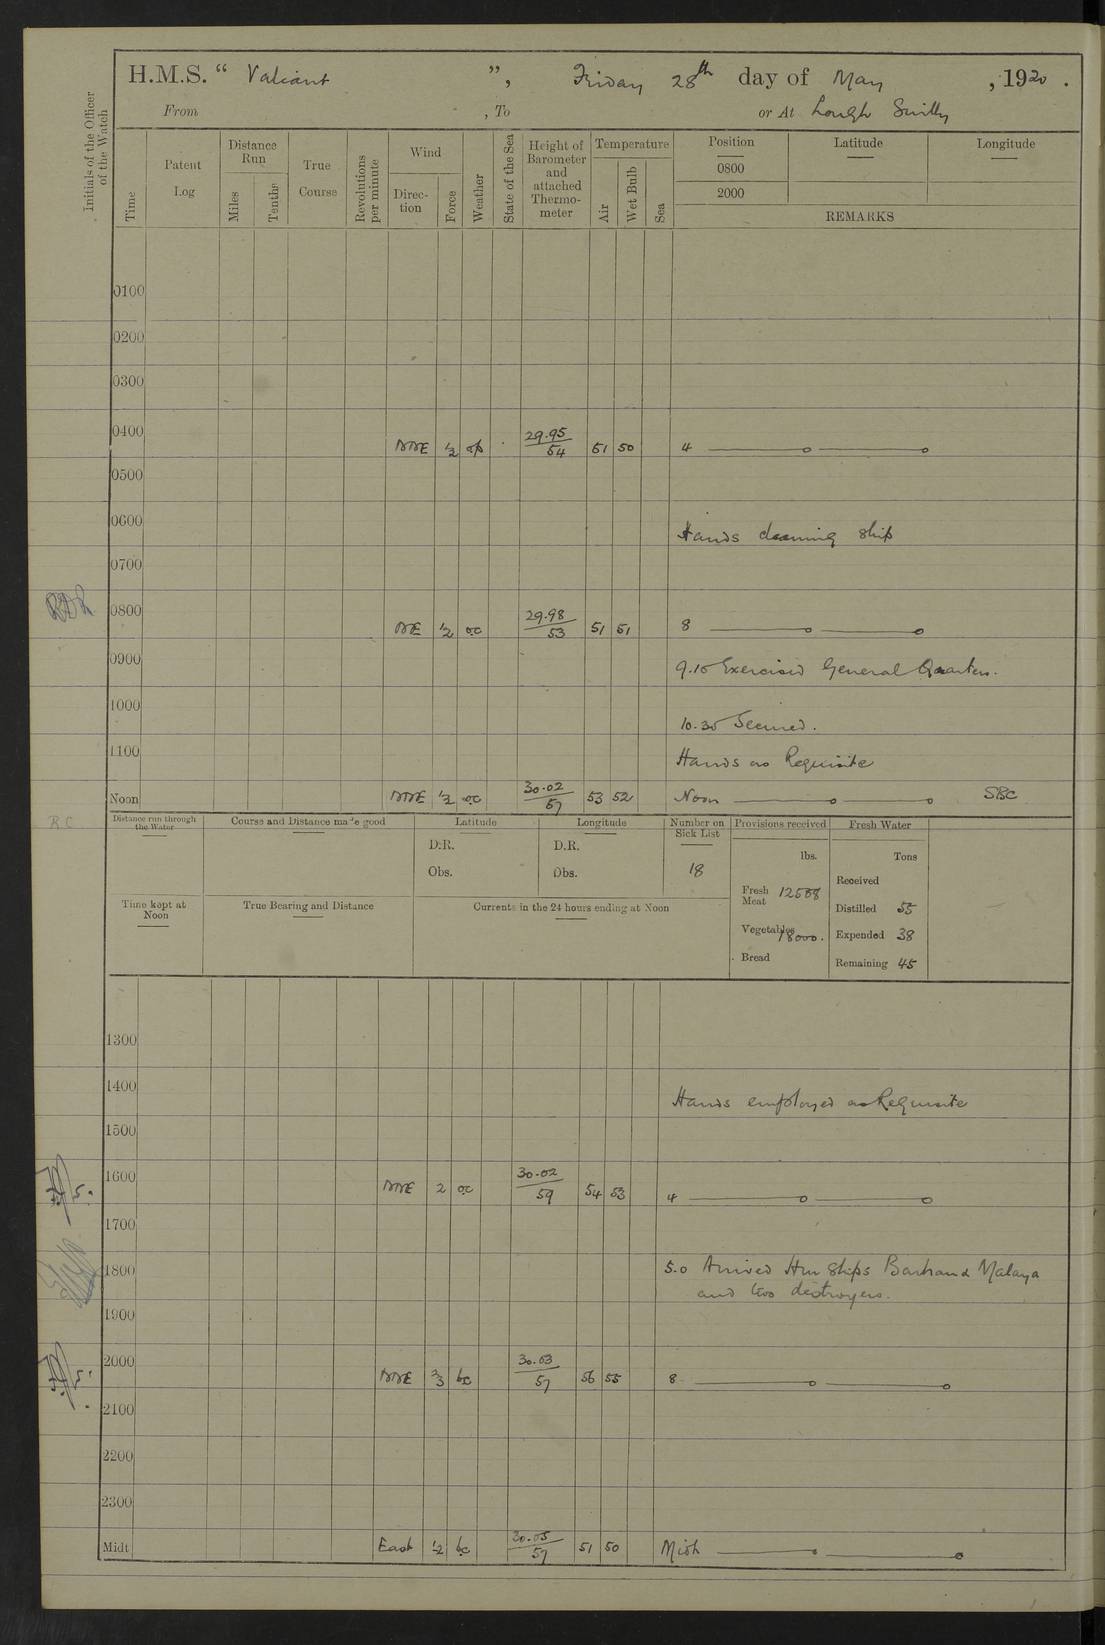 H.M.S. “ Valiant ”, Friday 28th day of May , 1920 .
From , To or At Lough Swilly
Initials of the Officer of the Watch
Time
Patent Log
Distance Run
Miles
Tenths
True Course
Revolutions per minute
Wind
Direc- tion
Force
Weather
State of the Sea
Height of Barometer and attached Thermo- meter
Temperature
Air
Wet Bulb
Sea
Position Latitude Longitude
0800
2000
REMARKS
0100
0200
0300
0400 NNE ½ op 29.95/54 51 50 4
0500
0600 Hands cleaning ship
0700
0800 NE ½ oc 29.98/53 51 51 8
0900 9.15 Exercised General Quarters.
1000 10.30 Secured.
1100 Hands as Requisite
Noon NNE ½ oc 30.02/57 53 52 Noon SBC
RC
Distance run through the Water
Course and Distance made good
Latitude
D.R.
Obs.
Longitude
D.R.
Obs.
Number on Sick List
18
Provisions received
lbs.
Fresh Meat 12588
Vegetables 18000.
Bread
Fresh Water
Tons
Received
Distilled 55
Expended 38
Remaining 45
Time kept at Noon
True Bearing and Distance
Currents in the 24 hours ending at Noon
1300
1400 Hands employed as Requisite
1500
1600 NNE 2 oc 30.02/59 54 53 4
1700
1800 5.0 Arrived HM Ships Barham & Malaya
and two destroyers.
1900
2000 NNE 2/3 bc 30.03/57 56 55 8
2100
2200
2300
Midt East ½ bc 30.05/57 51 50 Midt